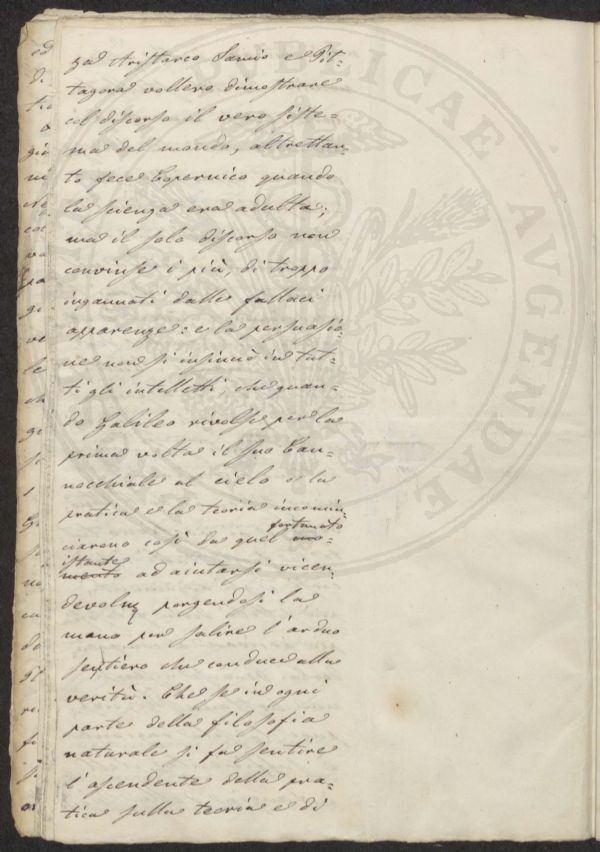 za Aristarco Samio e Pit=
tagora vollero dimostrare
col discorso il vero siste=
ma del mondo, altrettan=
to fece Copernico quando
la scienza era adulta;
ma il solo discorso non
convinse i più, di troppo
ingannati dalle fallaci
apparenze: e la persuasio=
ne non si insinuò in tut=
ti gli intelletti, che quan=
do Galileo rivolse per la
prima volta il suo Can=
nocchiale al cielo e la
pratica e la teoria incomin=
ciarono così da quel fortunato mo=
istante
mento ad aiutarsi vicen=
devolm porgendosi la
mano per salire l'arduo
sentiero che conduce alla
verità. Che se in ogni
parte della filosofia
naturale si fa sentire
l'ascendente della pra=
tica sulla teoria e di
PUBLICAE AVGENDAE